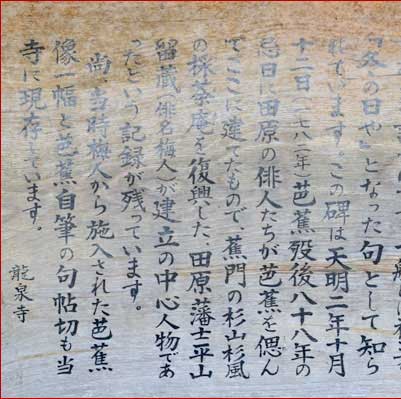 「冬の日や」となった句として知ら
れています。この碑は天明二年十月
十二日(一七八二年)芭蕉歿後八十八年の
忌日に田原の俳人たちが芭蕉を偲ん
でここに建てたもので、蕉門の杉山杉風
の採荼庵を復興した、田原藩士平山
留蔵(俳名梅人)が建立の中心人物であ
ったという記録が残っています。
尚、当時梅人から施入された芭蕉
像一幅と芭蕉自筆の句帖切も当
寺に現存しています。
龍泉寺